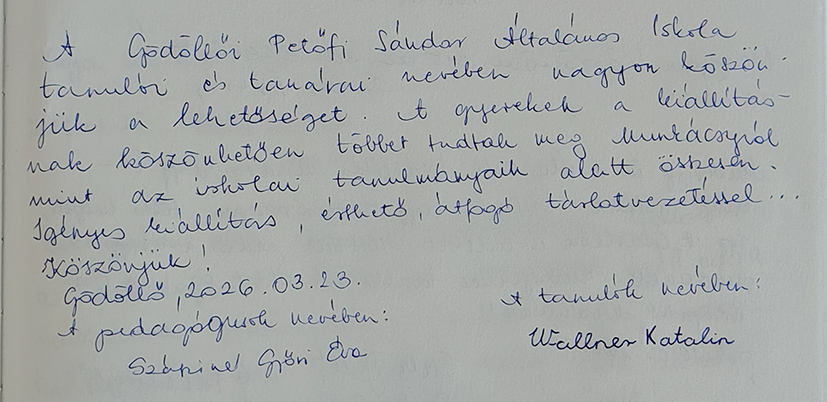 A Gödöllői Petőfi Sándor Általános Iskola
tanulói és tanárai nevében nagyon köszön-
jük a lehetőséget. A gyerekek a kiállítás-
nak köszönhetően többet tudtak meg Munkácsyról
mint az iskolai tanulmányaik alatt összesen.
Igényes kiállítás, érthető, átfogó tárlatvezetéssel...
Köszönjük!
Gödöllő, 2026.03.23.
A pedagógusok nevében:
Szápiné Győri Éva
A tanulók nevében:
Wallner Katalin